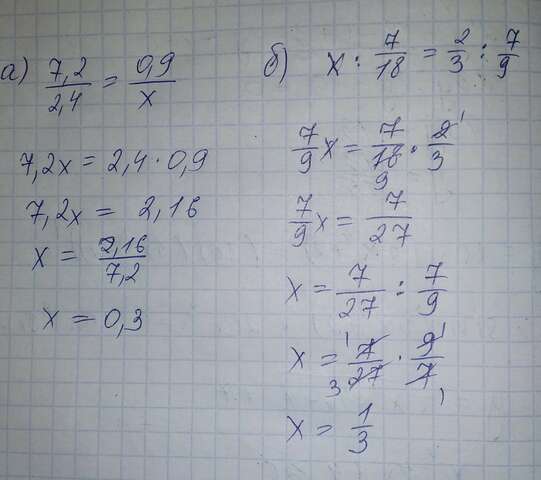 а) 7,2/2,4 = 0,9/x
7,2x = 2,4 · 0,9
7,2x = 2,16
x = 2,16/7,2
x = 0,3
б) x : 7/18 = 2/3 : 7/9
7/9 x = 7/18 9 · 2/3 1
7/9 x = 7/27
x = 7/27 : 7/9
x = 1 7/27 3 · 9/7 1 1
x = 1/3